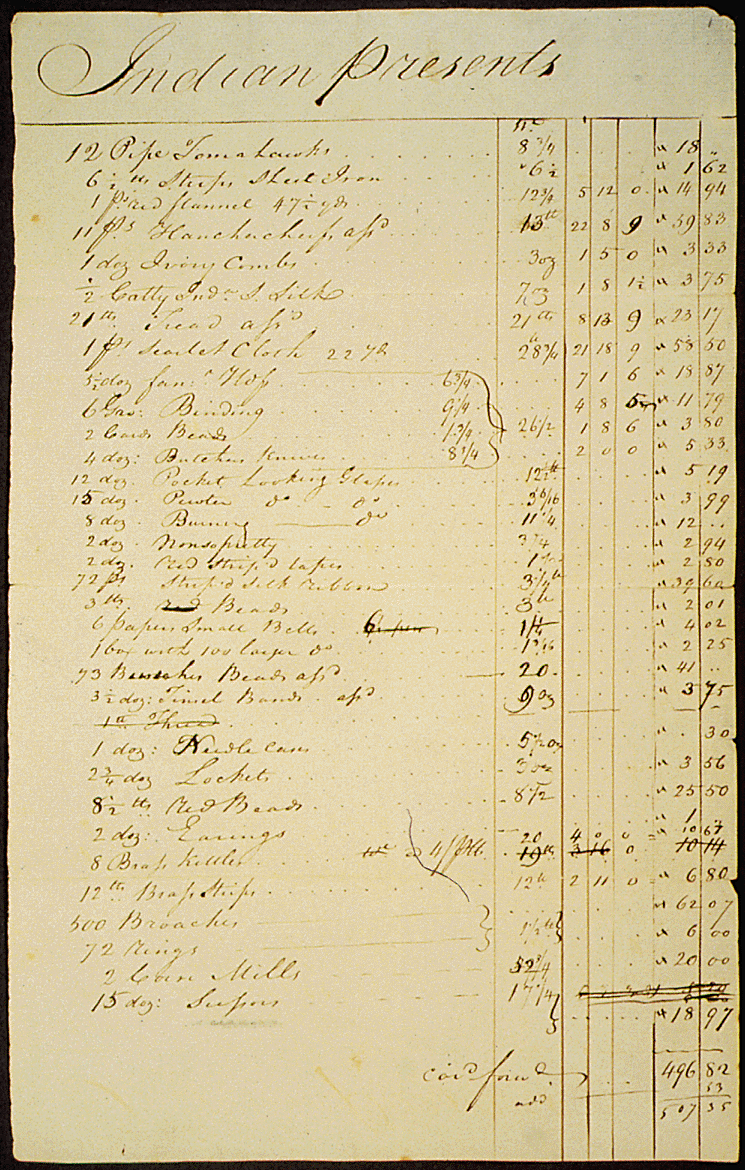 Indian Presents
Wt
12 Pipe Tomahawks 8 3/4 " 18 "
6 1/2 lb Strips Sheet Iron 6 1/2 " 1 62
1 ps red flannel 47 1/2 yds 12 3/4 5 12 0 " 14 94
11 ps Hanckerchiefs assd 13 lb 22 8 9 " 59 83
1 doz Ivory Combs 3 oz 1 5 0 " 3 33
1/2 Catty Inda S. Silk 7 oz 1 8 1 1/2 " 3 75
21 lb Tread assd 21 lb 8 13 9 " 23 17
1 ps Scarlet Cloth 22 yds 28 3/4 21 18 9 " 58 50
5 1/2 doz fan: Hkfs 6 3/4 7 1 6 " 18 87
6 Gro: Binding 9 1/4 4 8 " 11 79
2 Cards Beads 1 3/4 26 1/2 1 8 6 " 3 80
4 doz: Butcher Knives 8 3/4 2 0 0 " 5 33
12 doz. Pocket Looking Glasses 12 1/2 lb " 5 19
15 doz. Pewter do do " 3 99
8 doz. Burning do 11 1/4 " 12 ..
2 doz. Nonsopretty " 2 94
2 doz. Red strip'd tapes " 2 80
72 ps Strip'd silk ribbon 3 1/4 lb " 39 60
3 lb. Red Beads 3 lb " 2 01
6 Papers Small Bells 6 " 4 02
1 box with 100 larger do " 2 25
73 Bunches Beads assd 20 " 41 ..
3 1/2 doz: Tinsel Bands assd oz " 3 75
1 lb Thread
1 doz: Needle Cases " . 30
2 3/4 doz Lockets 3 oz " 3 56
8 1/2 lb Red Beads 8 1/2 " 25 50
2 doz: Earings " 1 ..
20 4 0 0 " 10 67
8 Brass Kettles a 4/ 19 lb 3 16 0 10 14
12 lb Brass Strips 12 lb 2 11 0 " 6 80
500 Broaches " 62 07
72 Rings 1 1/2 lb " 6 00
2 Corn Mills 52 3/4 " 20 00
15 doz: Scissors 17 1/4 " 18 97
car'd forwd 496 82
add 53
507 35